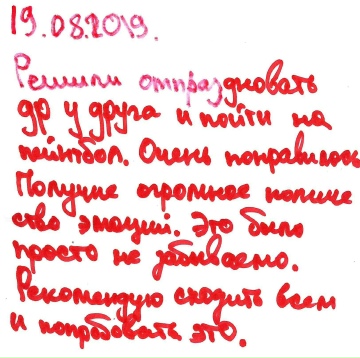 19.08.2019.
Решили отпраздновать
др у друга и пойти на
пейнтбол. Очень понравилось
Получие огромное количе
ство эмоций. Это было
просто не забываемо.
Рекомендую сходить всем
и попробовать это.